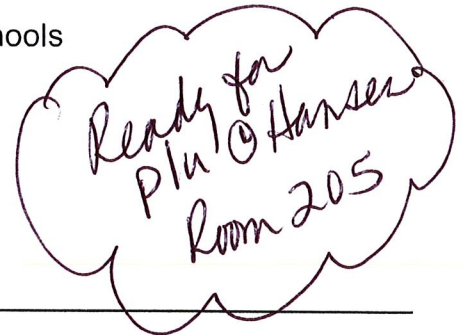 hools
Ready for
P/u @ Hansen
Room 205